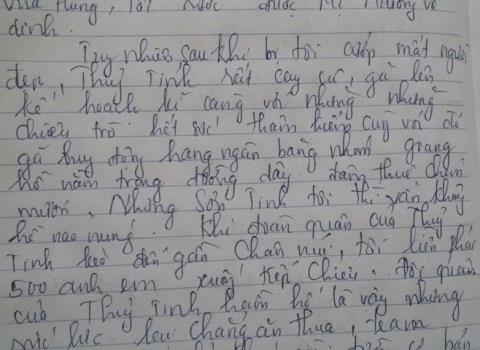 Vua Hùng, tôi rước được Mị Nương về
dinh.
Tuy nhiên, sau khi bị tôi cướp mất người
đẹp, Thuỷ Tinh rất cay cú, gã lên
kế hoạch kĩ càng với những những
chiêu trò hết sức thâm hiểm cùng với đó
gã huy động hàng ngàn băng nhóm giang
hồ nằm trong đường dây đâm thuê chém
mướn. Nhưng Sơn Tinh tôi thì vẫn không
hề nao núng. Khi đoàn quân của Thuỷ
Tinh kéo đến gần chân núi, tôi liền phái
500 anh em xuống tiếp chiêu. Đội quân
của Thuỷ Tinh hầm hố là vậy nhưng
sức lực yếu chẳng ăn thua, team